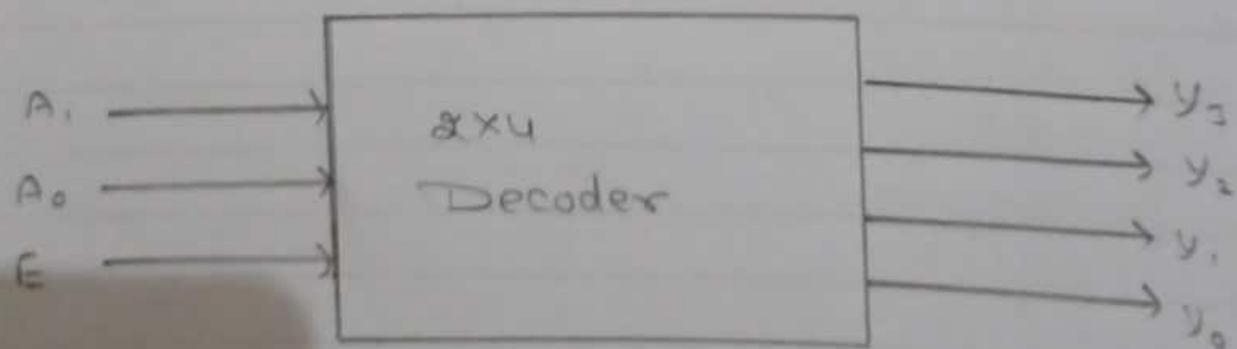 A₁
A₀
E
2x4
Decoder
y₃
y₂
y₁
y₀